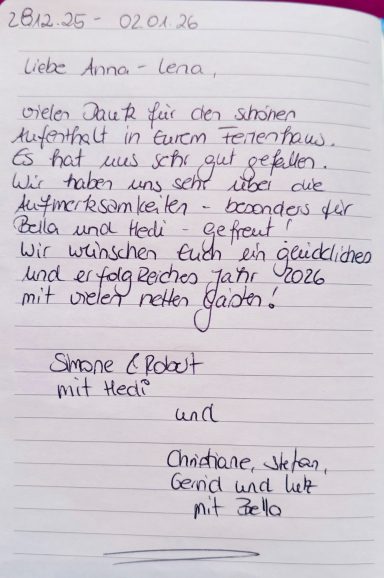 28.12.25 - 02.01.26
Liebe Anna-Lena,
vielen Dank für den schönen
Aufenthalt in Eurem Ferienhaus.
Es hat uns sehr gut gefallen.
Wir haben uns sehr über die
Aufmerksamkeiten - besonders für
Bella und Hedi - gefreut!
Wir wünschen Euch ein glückliches
und erfolgreiches Jahr 2026
mit vielen netten Gästen!
Simone & Robert
mit Hedi
und
Christiane, Stefan,
und Lutz
mit Bella